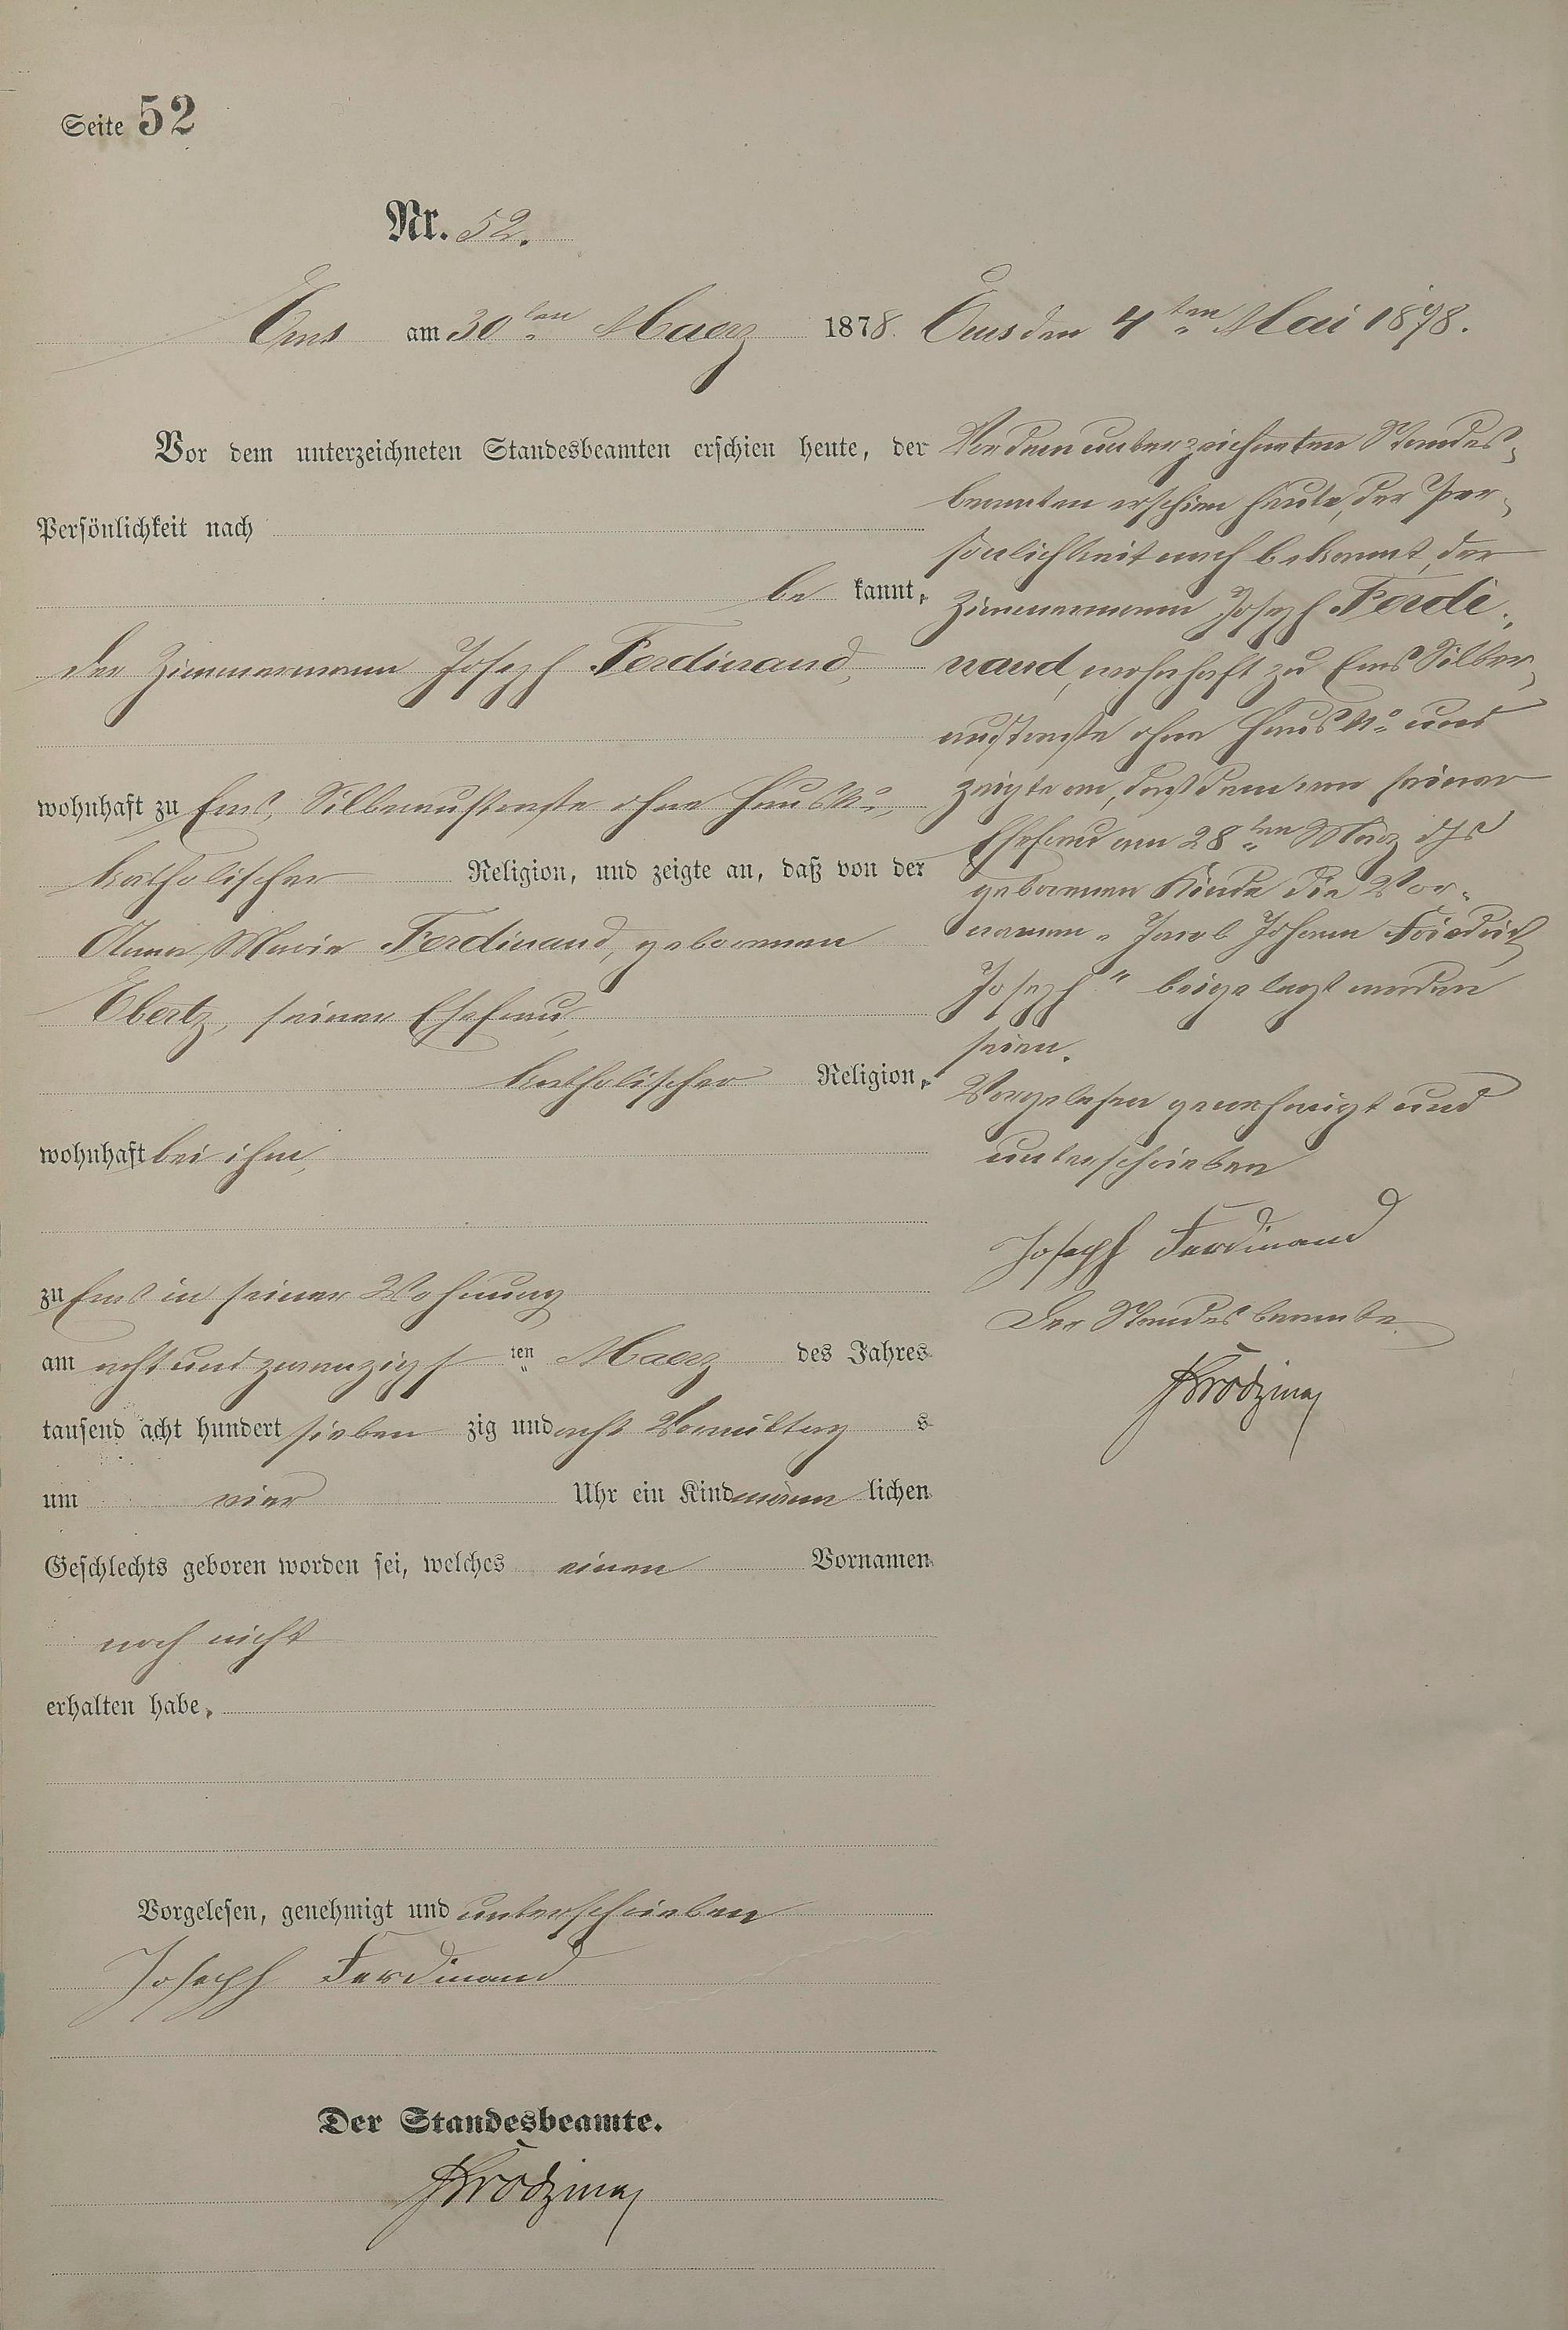 Seite 52
Nr. 52.
Ems am 30ten Maerz 1878.
Vor dem unterzeichneten Standesbeamten erschien heute, der
Persönlichkeit nach
be kannt,
der Zimmermann Joseph Ferdinand,
wohnhaft zu Ems, Silberaustraße ohne Haus No,
katholischer Religion, und zeigte an, daß von der
Anna Maria Ferdinand, geborenen
Ebertz, seiner Ehefrau,
katholischer Religion,
wohnhaft bei ihm,
zu Ems in seiner Wohnung
am acht und zwanzigsten Maerz des Jahres
tausend acht hundert sieben zig und acht Vormittag s
um vier Uhr ein Kind männ lichen
Geschlechts geboren worden sei, welches einen Vornamen
noch nicht
erhalten habe,
Vorgelesen, genehmigt und unterschrieben
Joseph Ferdinand
Der Standesbeamte.
Ems den 4ten Mai 1878.
Vor dem unterzeichneten Standes-
beamten erschien heute, der Per-
sönlichkeit nach bekannt, der
Zimmermann Joseph Ferdi-
nand, wohnhaft zu Ems Silber-
austraße ohne Haus No und
zeigte an, daß dem von seiner
Ehefrau am 28ten März djs
geborenen Kinde die Vor-
namen "Jacob Johann Friedrich
Joseph" beigelegt worden
seien.
Vorgelesen genehmigt und
unterschrieben
Joseph Ferdinand
Der Standesbeamte